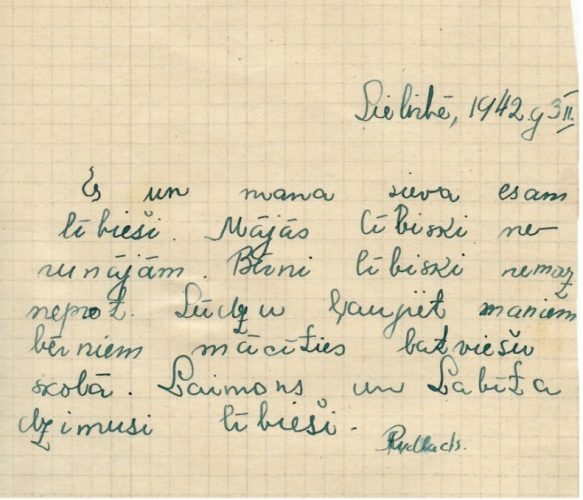 Lielirbē, 1942. g 3 II.
Es un mana sieva esam
lībieši. Mājās lībiski ne-
runājām. Bērni lībiski nemaz
neprot. Lūdzu ļaujiet maniem
bērniem mācīties latviešu
skolā. Laimons un Labīta
dzimusi lībieši.